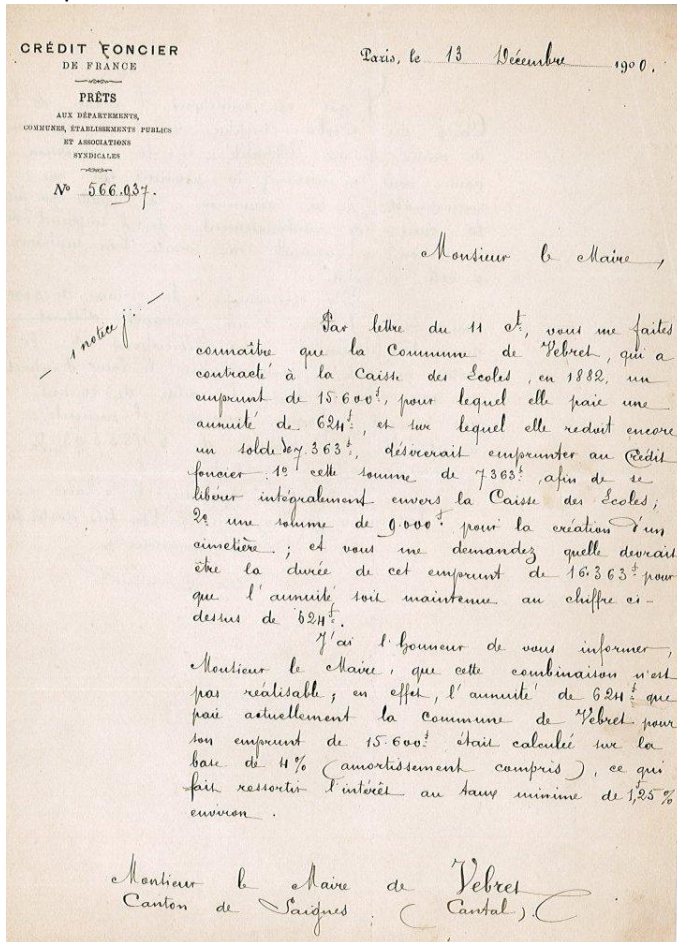 CRÉDIT FONCIER
DE FRANCE
PRÊTS
AUX DÉPARTEMENTS,
COMMUNES, ÉTABLISSEMENTS PUBLICS
ET ASSOCIATIONS
SYNDICALES
No 566.937.
Paris, le 13 Décembre 1900.
Monsieur le Maire,
1 notice j:
Par lettre du 11 ct, vous me faites
connaître que la Commune de Vebret, qui a
contracté à la Caisse des Écoles, en 1882, un
emprunt de 15600f, pour lequel elle paie une
annuité de 624f, et sur lequel elle redoit encore
un solde de 7.363f, désirerait emprunter au Crédit
foncier 1o cette somme de 7363f, afin de se
libérer intégralement envers la Caisse des Écoles;
2o une somme de 9.000f pour la création d'un
cimetière; et vous me demandez quelle devrait
être la durée de cet emprunt de 16.363f pour
que l'annuité soit maintenue au chiffre ci-
dessus de 624f.
J'ai l'honneur de vous informer,
Monsieur le Maire, que cette combinaison n'est
pas réalisable; en effet, l'annuité de 624f que
paie actuellement la Commune de Vebret pour
son emprunt de 15.600f était calculée sur la
base de 4% (amortissement compris), ce qui
fait ressortir l'intérêt au taux minime de 1f,25%
environ.
Monsieur le Maire de Vebret
Canton de Saignes (Cantal).